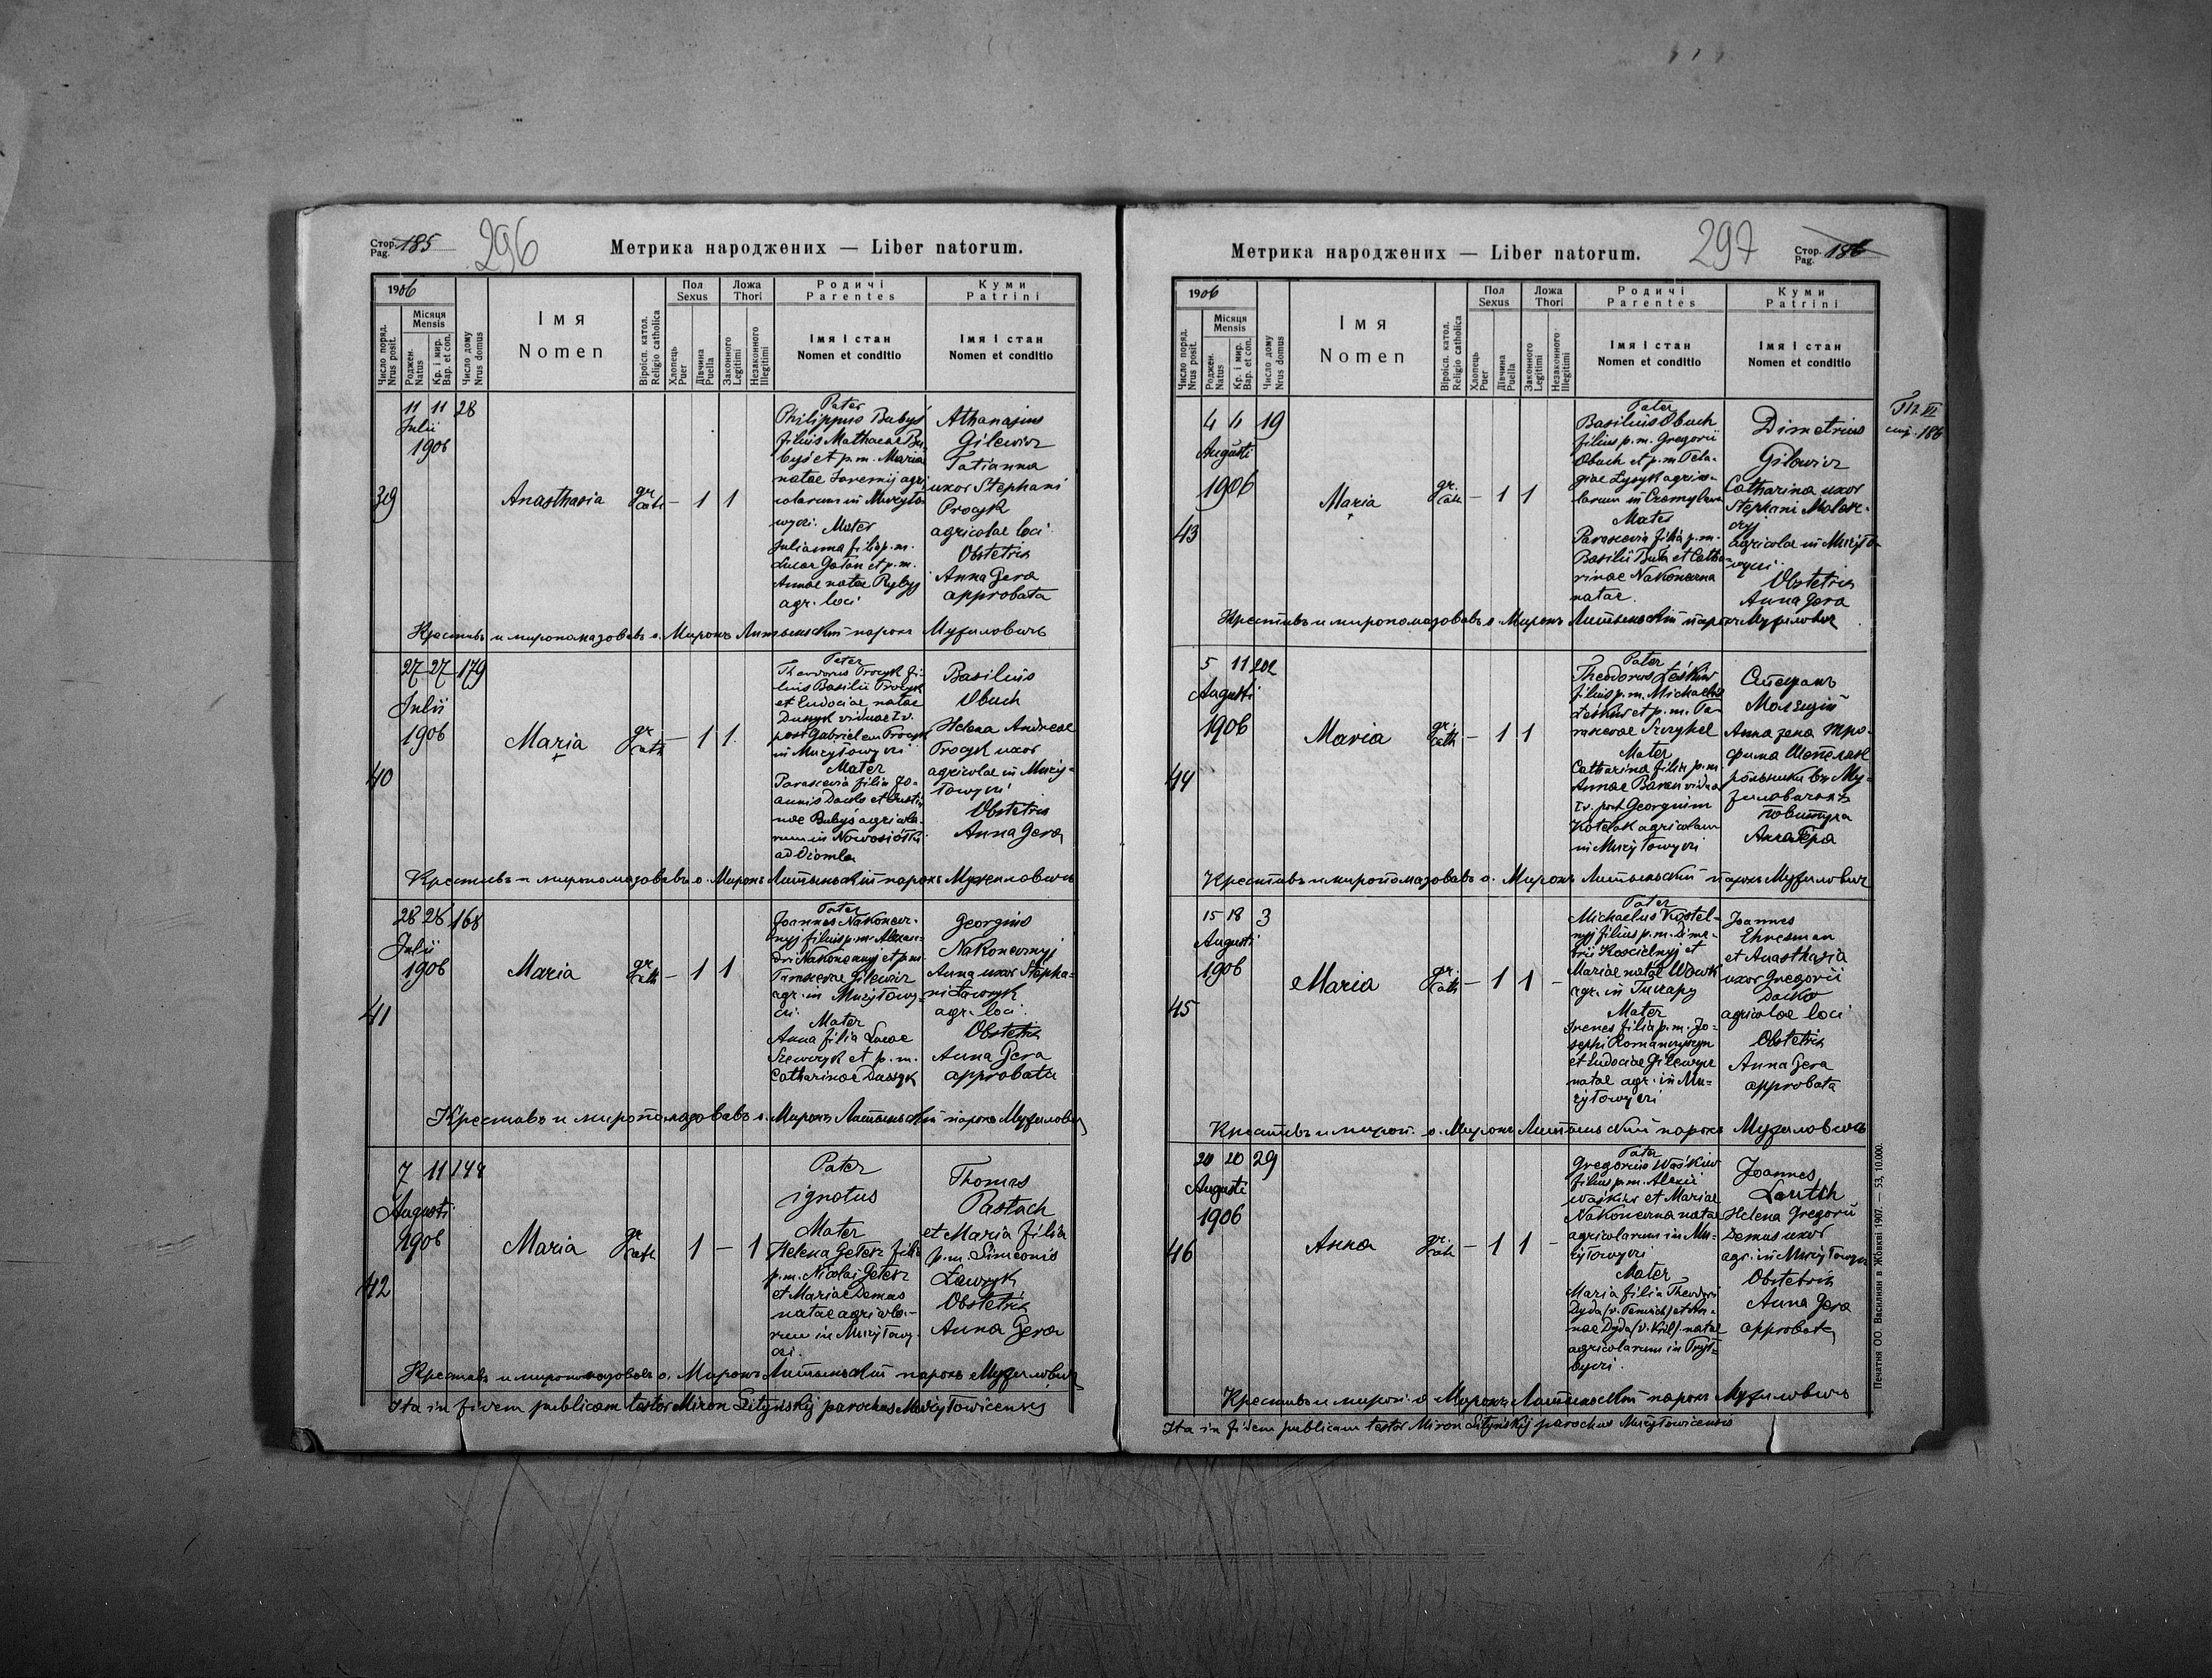 Стор. 185
Pag.
296
Метрика народжених — Liber natorum.
1906
Число поряд.
Nrus posit.
Місяця
Mensis
Роджен.
Natus
Кр. і мир.
Bap. et con.
Число дому
Nrus domus
Імя
Nomen
Віроісп. катол.
Religio catholica
Пол
Sexus
Хлопець
Puer
Дівчина
Puella
Ложа
Thori
Законного
Legitimi
Незаконного
Illegitimi
Родичі
Parentes
Імя і стан
Nomen et conditio
Куми
Patrini
Імя і стан
Nomen et conditio
39
11 11 28
Julii
1906
Anasthasia
gr. cath
— 1 1
Pater
Philippus Babyś
filius Mathaeae Ba-
byś et p.m. Mariae
natae Jaremij agri-
colarum in Mużyło-
wyci. Mater
Julianna filia p.m.
Lucae Gaton et p.m.
Annae natae Rybyj
agr. loci
Athanasius
Gilewicz
Tatianna
uxor Stephani
Procyk
agricolae loci
Obstetrix
Anna Gera
approbata
Крестивъ и миропомазовавъ о. Миронъ Литыньскій парохъ Мужиловичъ
40
27 27 179
Julii
1906
Maria
gr. cath
— 1 1
Pater
Theodorus Procyk fi-
lius Basilii Procyk
et Eudociae natae
viduae I v.
post Gabrielem Procyk
in Mużyłowyci
Mater
Parascevia filia Jo-
annis Dacko et Justi-
nae Babyś agricola-
rum in Nowosiółki
ad
Basilius
Obuch
Helena Andreae
Procyk uxor
agricolae in Muży-
łowyci
Obstetrix
Anna Gera
Крестивъ и миропомазовавъ о. Миронъ Литыньскій парохъ Мужиловичъ
41
28 28 168
Julii
1906
Maria
gr. cath
— 1 1
Pater
Joannes Nakonecz-
nyj filius p.m. Alexan-
dri Nakonecznyj et p.m.
Parascevae Gilewicz
agr. in Mużyłowy-
ci.
Mater
Anna filia Lucae
Szewczyk et p.m.
Catharinae Dussyk
Georgius
Nakonecznyj
Anna uxor Stepha-
ni Ławryk
agr. loci
Obstetrix
Anna Gera
approbata
Крестивъ и миропомазовавъ о. Миронъ Литыньскій парохъ Мужиловичъ
42
7 11 144
Augusti
1906
Maria
gr. cath
1 — 1
Pater
ignotus
Mater
Helena Getesz filia
p.m. Nicolai Getesz
et Mariae Demus
natae agricola-
rum in Mużyłowy-
ci.
Thomas
Pastach
et Maria filia
p.m. Simeonis
Ławryk
Obstetrix
Anna Gera
Крестивъ и миропомазовавъ о. Миронъ Литыньскій парохъ Мужиловичъ
Ita in fidem publicam testor Miron Lityńskij parochus Mużyłowicensis
Метрика народжених — Liber natorum.
297
Стор. 186
Pag.
1906
Число поряд.
Nrus posit.
Місяця
Mensis
Роджен.
Natus
Кр. і мир.
Bap. et con.
Число дому
Nrus domus
Імя
Nomen
Віроісп. катол.
Religio catholica
Пол
Sexus
Хлопець
Puer
Дівчина
Puella
Ложа
Thori
Законного
Legitimi
Незаконного
Illegitimi
Родичі
Parentes
Імя і стан
Nomen et conditio
Куми
Patrini
Імя і стан
Nomen et conditio
стр. 186
43
4 4 19
Augusti
1906
Maria
gr. cath
— 1 1
Pater
Basilius Obuch
filius p.m. Gregorii
Obuch et p.m. Pela-
giae Łysyk agrico-
larum in
Mater
Parascevia filia p.m.
Basilii Buła et Catha-
rinae Nakoneczna
natae.
Dimetrius
Gilewicz
Catharina uxor
Stephani
agricolae in Mużyło-
wyci
Obstetrix
Anna Gera
Крестивъ и миропомазовавъ о. Миронъ Литыньскій парохъ Мужиловичъ
44
5 11 202
Augusti
1906
Maria
gr. cath
— 1 1
Pater
Theodorus Leśkiw
filius p.m. Michaelis
Leśkiw et p.m. Pa-
rascevae
Mater
Catharina filia p.m.
Annae Baran vidua
I v. post Georgium
Kotelak agricolarum
in Mużyłowyci
Стефанъ
Анна жена Тро-
фима
рольники въ Му-
жиловичахъ
повитуха
Анна Ґера
Крестивъ и миропомазовавъ о. Миронъ Литыньскій парохъ Мужиловичъ
45
15 18 3
Augusti
1906
Maria
gr. cath
— 1 1 —
Pater
Michaelus Kostel-
nyj filius p.m. Dime-
trii Koscielnyj et
Mariae natae Wowk
agr. in Tuczapy
Mater
Irenes filia p.m. Jo-
sephi Romanczyszyn
et Eudociae Gilewicz
natae agr. in Mu-
żyłowyci
Joannes
Ehresman
et Anasthasia
uxor Gregorii
Dacko
agricolae loci
Obstetrix
Anna Gera
approbata
Крестивъ и мироп. о. Миронъ Литыньскій парохъ Мужиловичъ
46
20 20 29
Augusti
1906
Anna
gr. cath
— 1 1 —
Pater
Gregorius Waśkiw
filius p.m. Alexii
Waśkiw et Mariae
Nakoneczna natae
agricolarum in Mu-
żyłowyci
Mater
Maria filia Theodori
Dyda et An-
nae Dyda (v. Król) natae
agricolarum in Prył-
byci.
Joannes
Łautsch
Helena Gregorii
Demus uxor
agr. in Mużyłowyci
Obstetrix
Anna Gera
approbata
Крестивъ и мироп. о. Миронъ Литыньскій парохъ Мужиловичъ
Ita in fidem publicam testor Miron Lityńskij parochus Mużyłowicensis
Печатня ОО. Василиян в Жовкві 1907. — 53, 10.000.